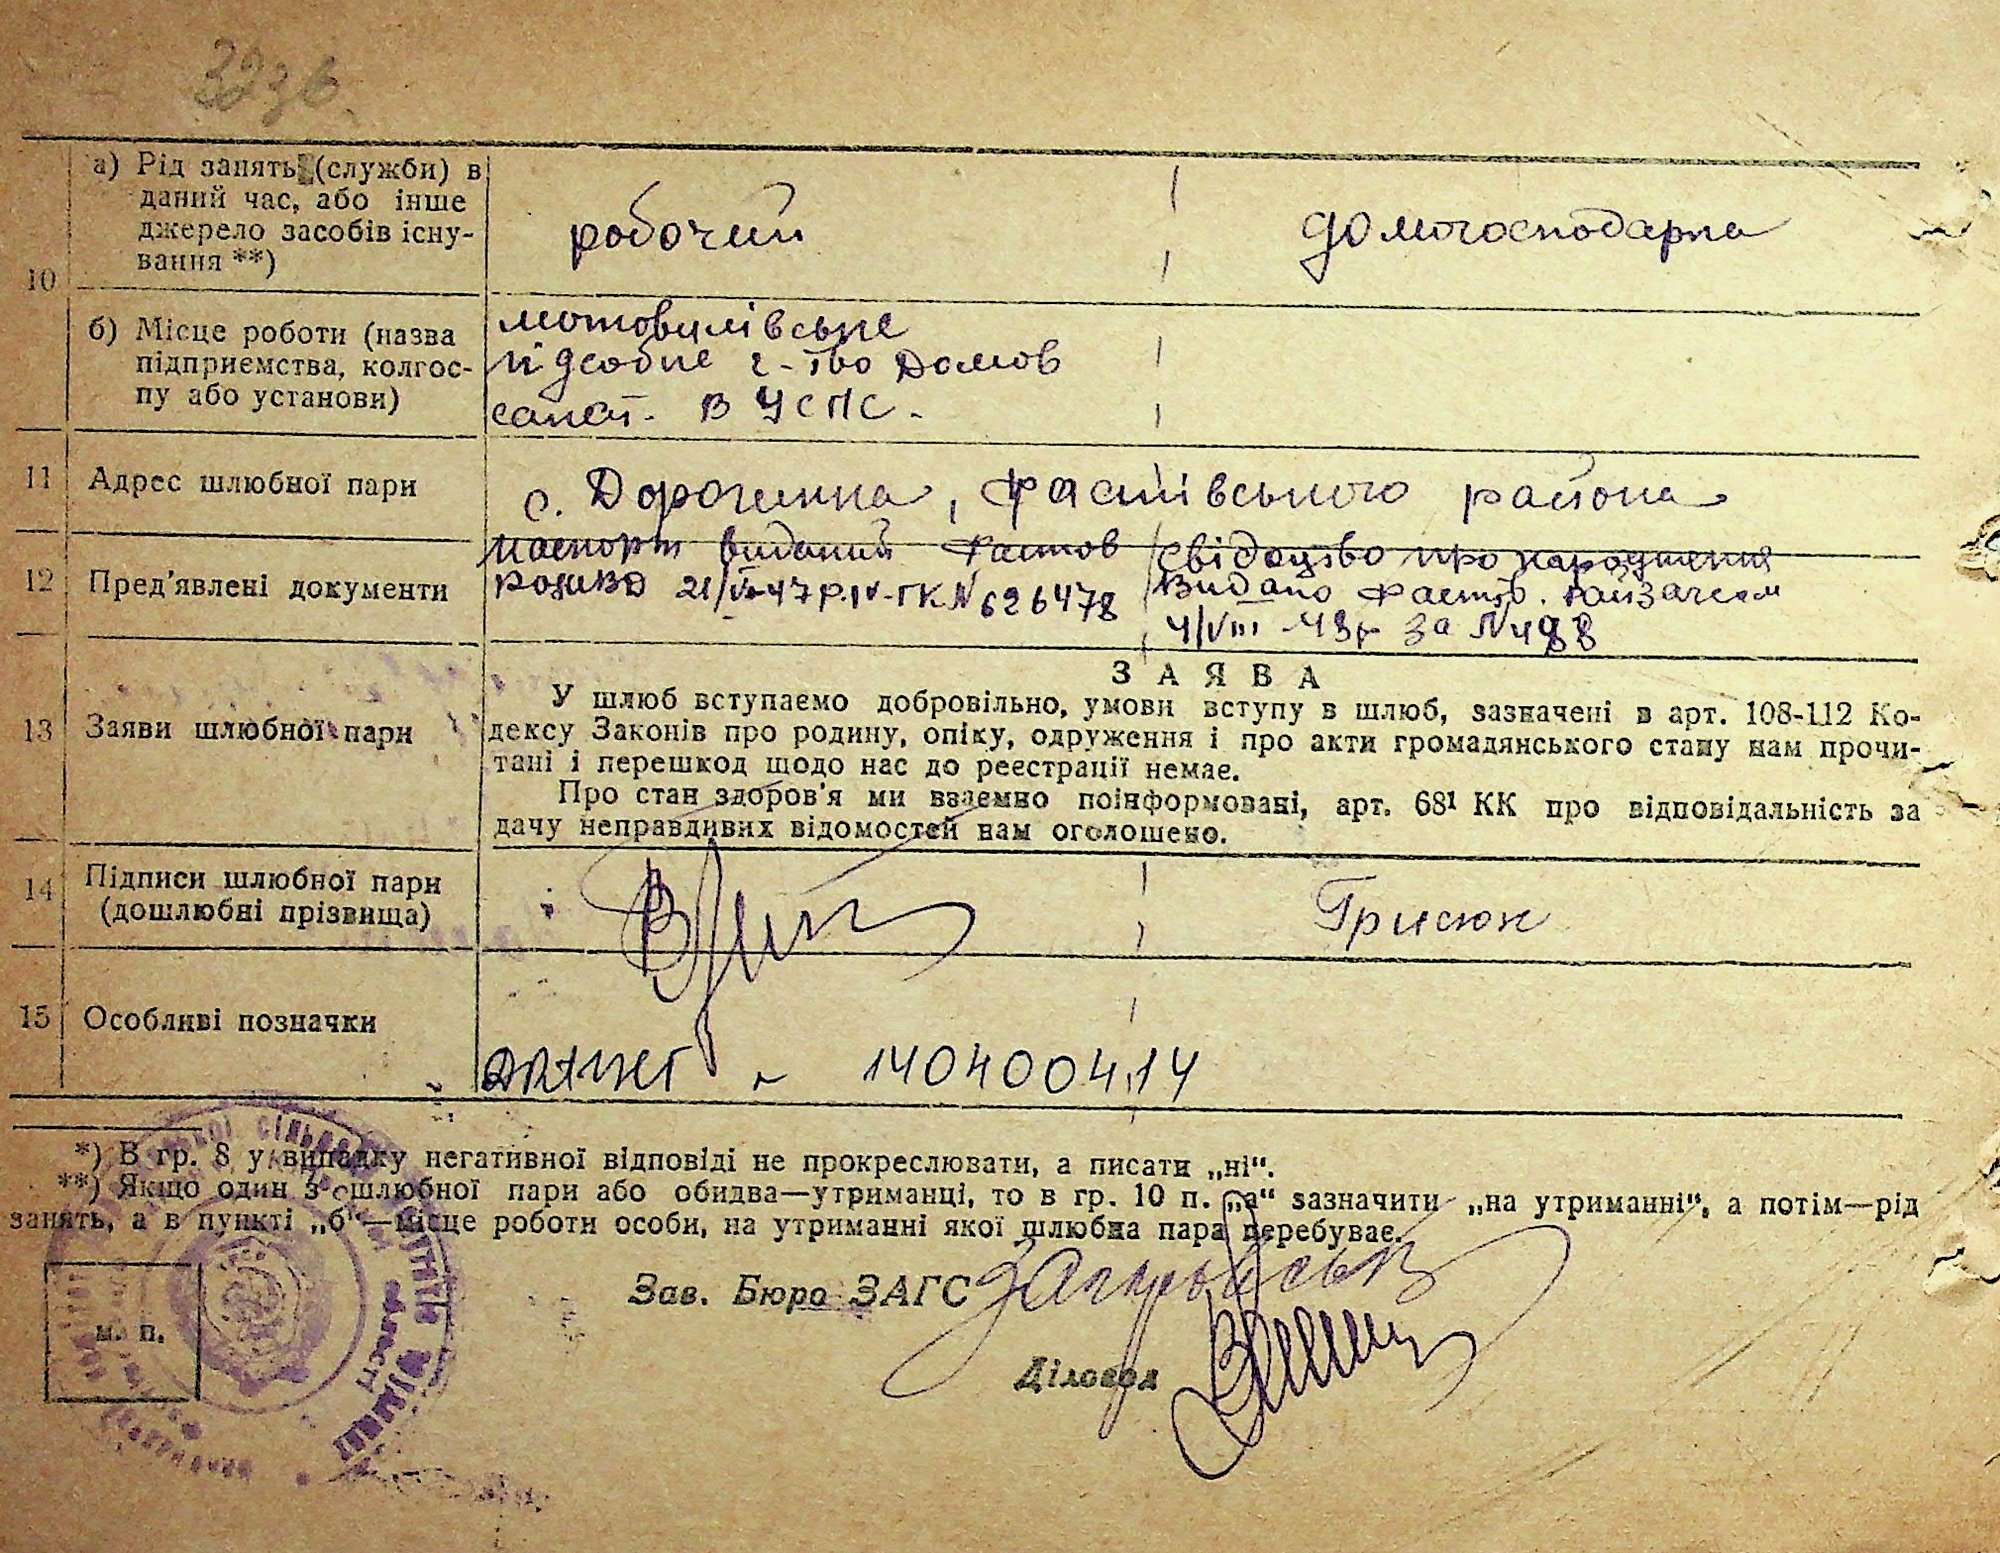 3236
10
а) Рід занять (служби) в
даний час, або інше
джерело засобів існу-
вання **)
робочий
домогосподарка
б) Місце роботи (назва
підприємства, колгос-
пу або установи)
мотовилівське
підсобне г-тво Домов
санат. ВЦСПС.
11 Адрес шлюбної пари
с. Дорогинка, Фастівського района
12 Пред'явлені документи
паспорт виданий Фастов
21/ 47 р. IV-ГК N 626478
свідоцтво про народження
Видано Фастів.
4/VIII-43р за N 488
13 Заяви шлюбної пари
ЗАЯВА
У шлюб вступаємо добровільно, умови вступу в шлюб, зазначені в арт. 108-112 Ко-
дексу Законів про родину, опіку, одруження і про акти громадянського стану нам прочи-
тані і перешкод щодо нас до реєстрації немає.
Про стан здоров'я ми взаємно поінформовані, арт. 68¹ КК про відповідальність за
дачу неправдивих відомостей нам оголошено.
14 Підписи шлюбної пари
(дошлюбні прізвища)
Грисюк
15 Особливі позначки
140400414
*) В гр. 8 у випадку негативної відповіді не прокреслювати, а писати „ні“.
**) Якщо один з шлюбної пари або обидва—утриманці, то в гр. 10 п. „а“ зазначити „на утриманні“, а потім—рід
занять, а в пункті „б“—місце роботи особи, на утриманні якої шлюбна пара перебуває.
Зав. Бюро ЗАГС
м. п.
Діловод